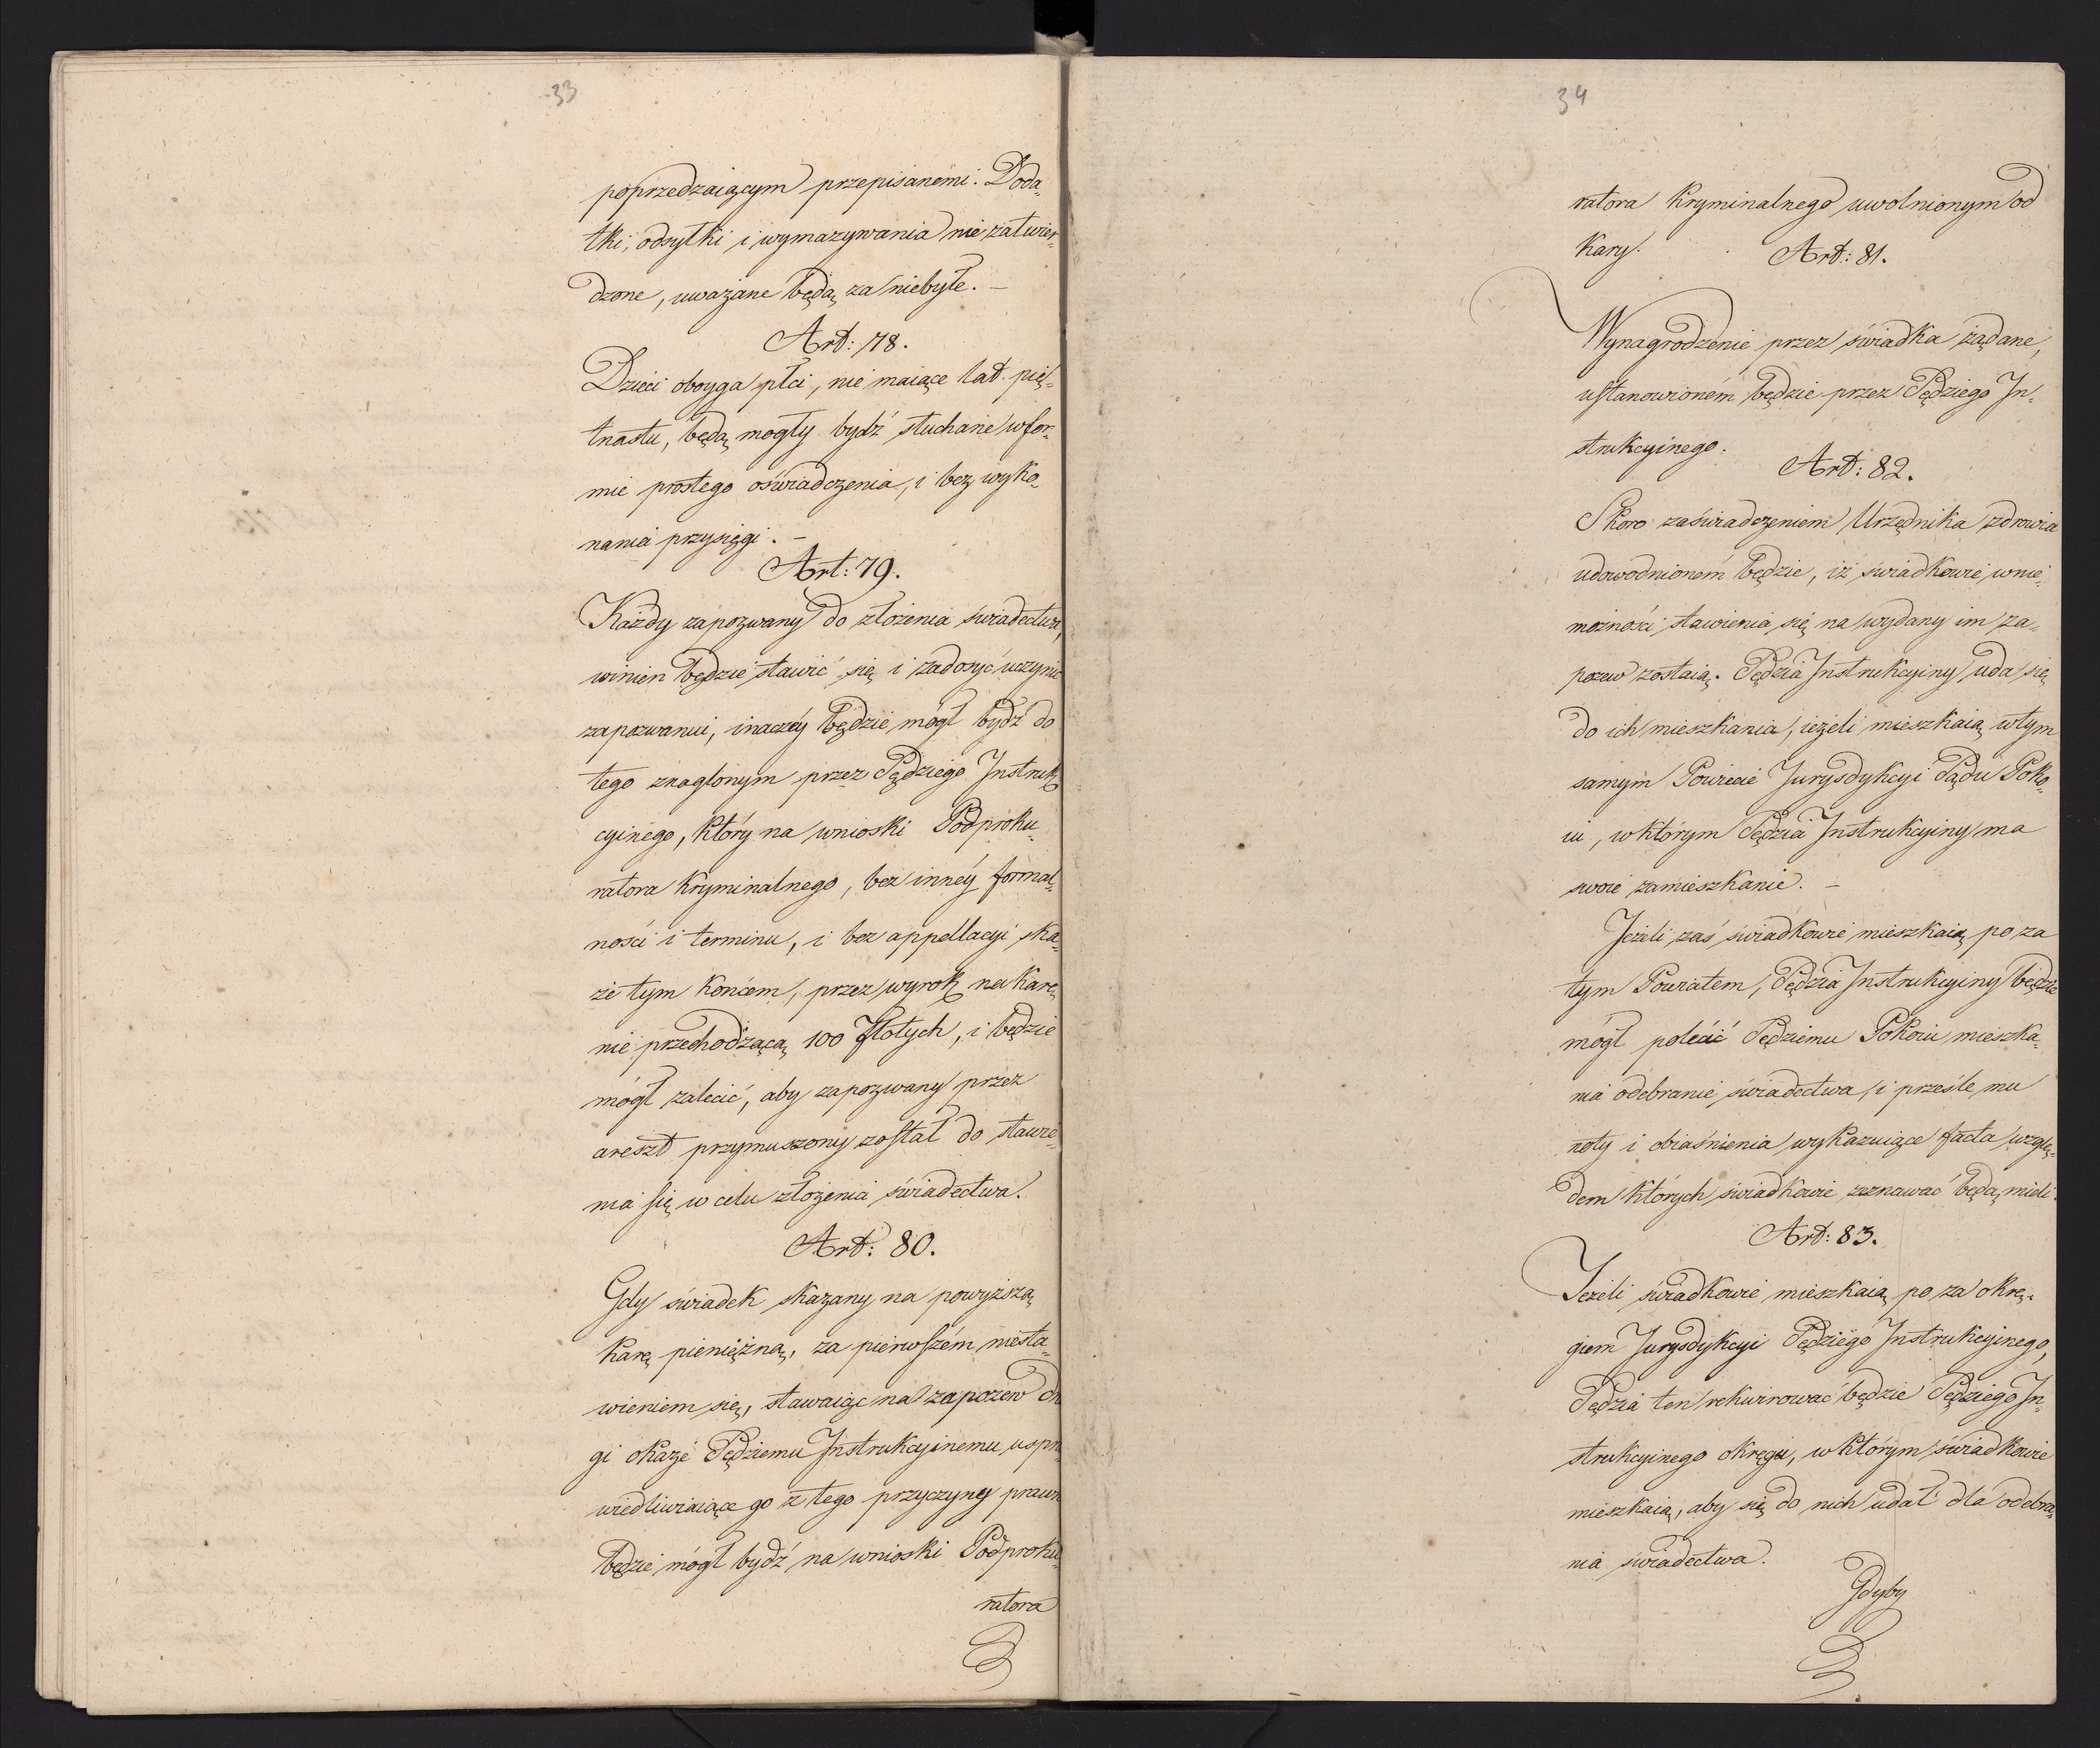 33
poprzedzaiącym przepisanemi. Doda„
tki, odsyłki i wymazywania nie zatwier„
dzone, uważane będą za niebyłe. –
Art: 78.
Dzieci oboyga płci, nie maiące lat pię„
tnastu, będą mogły bydź słuchane w for„
mie prostego oświadczenia, i bez wyko„
nania przysięgi. –
Art: 79.
Każdy zapozwany do złożenia świadectwa,
winien będzie stawić się i zadosyć uczynić
zapozwaniu, inaczéy będzie mógł bydź do
tego znaglonym przez Sędziego Instruk„
cyinego, który na wnioski Podproku„
ratora Kryminalnego, bez innéy formal„
ności i terminu, i bez appellacyi ska„
że tym końcem, przez wyrok na karę
nie przechodzącą 100 Złotych, i będzie
mógł zalecić, aby zapozwany przez
areszt przymuszony został do stawie„
nia się w celu złożenia świadectwa.
Art: 80.
Gdy świadek skazany na powyższą
karę pieniężną, za pierwszém niesta„
wieniem się, stawaiąc na zapozew dru
gi okaże Sędziemu Instrukcyinemu uspra
wiedliwiaiące go z tego przyczyny prawn
będzie mógł bydź na wnioski Podproku„
ratora
34
ratora Kryminalnego uwolnionym od
kary.
Art: 81.
Wynagrodzenie przez świadka żądane,
ustanowioném będzie przez Sędziego In„
strukcyinego.
Art: 82.
Skoro zaświadczeniem Urzędnika zdrowia
udowodnioném będzie, iż świadkowie w nie„
możności stawienia się na wydany im za„
pozew zostaią. Sędzia Instrukcyiny uda się
do ich mieszkania, ieżeli mieszkaią w tym
samym Powiecie Jurysdykcyi Sądu Poko„
iu, w którym Sędzia Instrukcyiny ma
swoie zamieszkanie. –
Jeżeli zaś świadkowie mieszkaią po za
tym Powiatem, Sędzia Instrukcyiny będzie
mógł polécić Sędziemu Pokoiu mieszka„
nia odebranie świadectwa, i prześle mu
noty i obiaśnienia wykazuiące facta wzglę„
dem których świadkowie zeznawać będą mieli.
Art: 83.
Jeżeli świadkowie mieszkaią po za okrę„
giem Jurysdykcyi Sędziego Instrukcyinego,
Sędzia ten rekwirować będzie Sędziego In„
strukcyinego okręgu, w którym świadkowie
mieszkaią, aby się do nich udał dla odebra„
nia świadectwa.
Gdyby